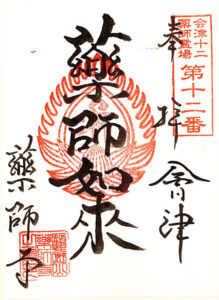 会津十二
薬師霊場
第十二番
奉拝
会津
薬師如来
薬師寺